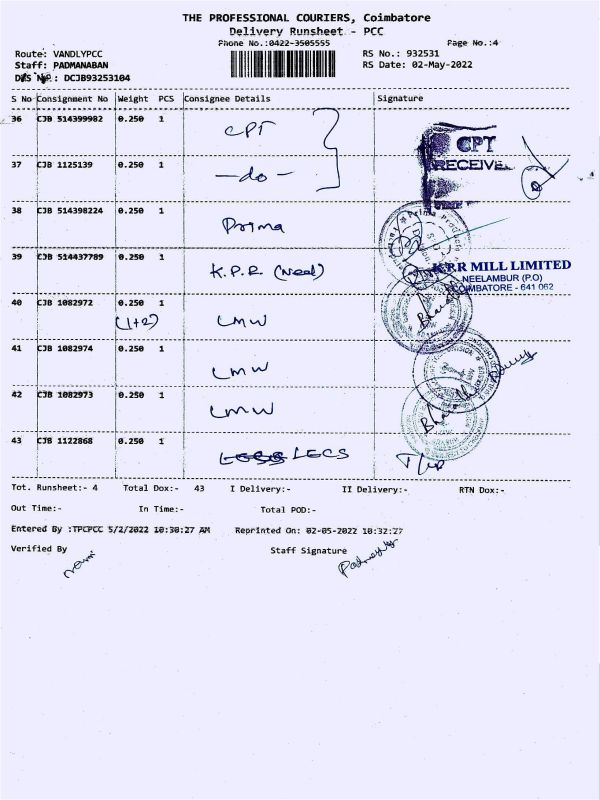 THE PROFESSIONAL COURIERS, Coimbatore
Delivery Runsheet - PCC
Phone No.:0422-3505555 Page No.:4
Route: VANDLYPCC RS No.: 932531
Staff: PADMANABAN RS Date: 02-May-2022
DRS No.: DCJB93253104
S No Consignment No Weight PCS Consignee Details Signature
36 CJB 514399982 0.250 1 CPT
CPT
RECEIVE
37 CJB 1125139 0.250 1 -do-
38 CJB 514398224 0.250 1 Prima
39 CJB 514437789 0.250 1 K.P.R. (Neel)
MILL LIMITED
NEELAMBUR (P.O)
COIMBATORE - 641 062
40 CJB 1082972 0.250 1 LMW
(1+2)
41 CJB 1082974 0.250 1 LMW
42 CJB 1082973 0.250 1 LMW
43 CJB 1122868 0.250 1 LECS
Tot. Runsheet:- 4 Total Dox:- 43 I Delivery:- II Delivery:- RTN Dox:-
Out Time:- In Time:- Total POD:-
Entered By :TPCPCC 5/2/2022 10:30:27 AM Reprinted On: 02-05-2022 10:32:27
Verified By Staff Signature